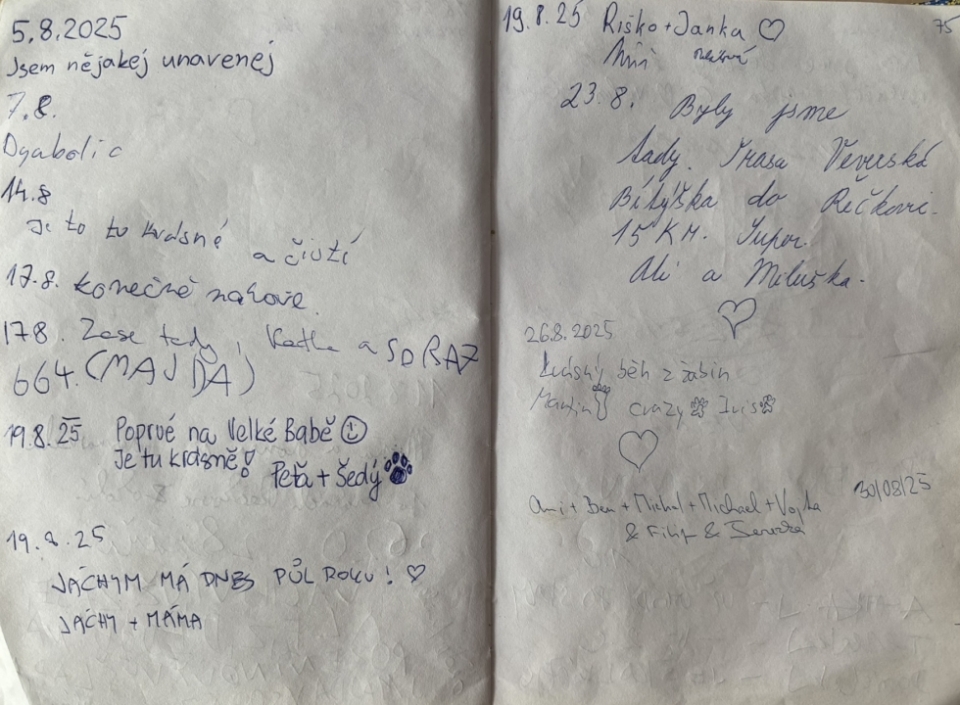 5.8.2025
Jsem nějakej unavenej
7.8.
Dyabolic
14.8
Je to tu krásné a čistí
17.8. konečně nahoře.
178. Zase tady, Katka a
664. (MAJDA)
19.8.25 Poprvé na Velké Babě
Je tu krásně!
Peťa + Šedý
19.8.25
JÁCHYM MÁ DNES PŮL ROKU! ♡
JÁCHY + MÁMA
75
19.8.25 Riško+Janka ♡
23.8. Byly jsme
tady. Trasa Veverská
Bítýška do Řečkovic.
15 KM. Supor.
Ali a Miluška.
♡
26.8.2025
běh z žabin
Martin crazy Iris
♡
30/08/25
Ami + Ben + Michal + Michael + Vojta
& Filip &